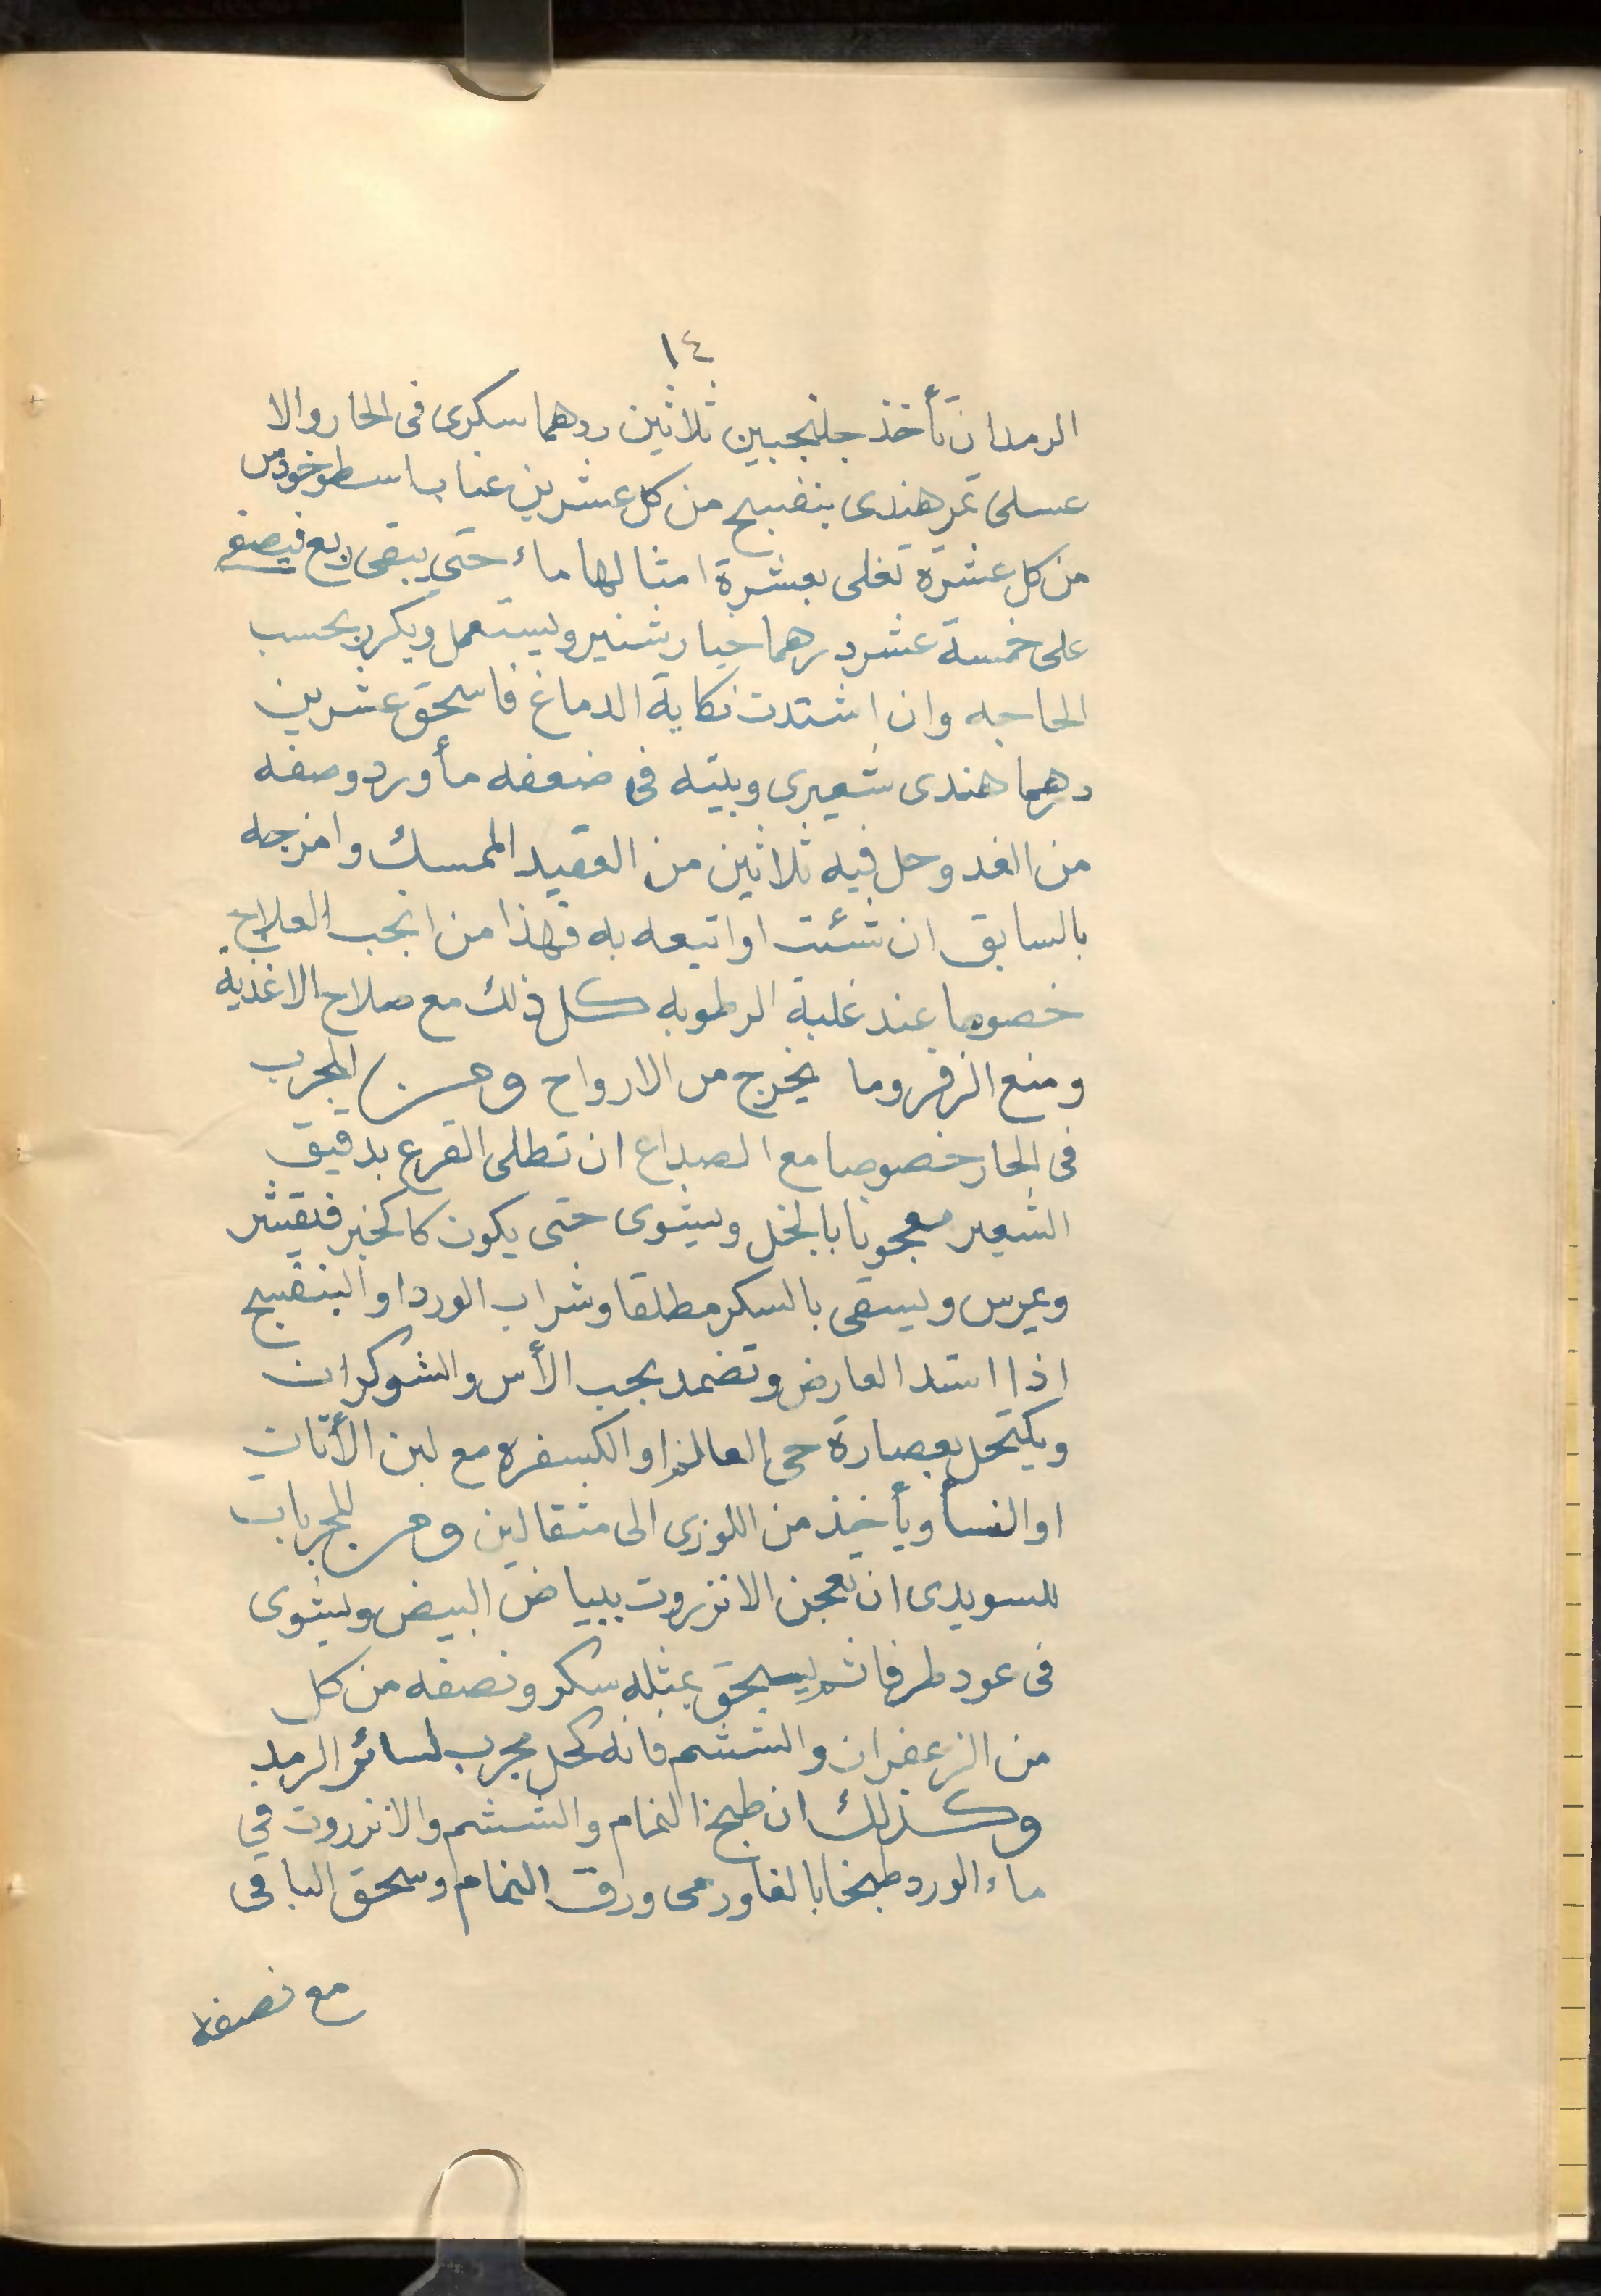 ١٤
الرمدان تأخذ جلنجبين ثلاثين درهما سكرى فى الحار والا
عسلى تمرهندى بنفسج من كل عشرين عناب اسطوخودس
من كل عشرة تغلى بعشرة امثالها ماء حتى يبقى ربع فيصفى
على خمسة عشر درهما خيار شنبر ويستعمل ويكرر بحسب
الحاجه وان اشتدت نكاية الدماغ فاسحق عشرين
درهما هندى شعيرى وبيته فى ضعفه مأورد وصفه
من الغد وحل فيه ثلاثين من العقيد الممسك وامزجه
بالسابق ان شئت او اتبعه به فهذا من انجب العلاج
خصوصا عند غلبة الرطوبه كل ذلك مع صلاح الاغذية
ومنع الزفر وما يخرج من الارواح ومن المجرب
فى الحار خصوصا مع الصداع ان تطلى القرع بدقيق
الشعير معجونا بالخل ويشوى حتى يكون كالخبز فتقشر
ويمرس ويسقى بالسكر مطلقا وشراب الورد او البنفسج
اذا اشتد العارض وتضمد بحب الأس والشوكران
ويكتحل بعصارة حى العالم او الكسفره مع لبن الأتان
او النسأ ويأخذ من اللوزى الى مثقالين ومن المجربات
للسويدى ان تعجن الانزروت ببياض البيض ويشوى
فى عود طرفا ثم يسحق بمثله سكر ونصفه من كل
من الزعفران والششم فانه كحل مجرب لسائر الرمد
وكذلك ان طبخ النمام والششم والانزروت في
ماء الورد طبخا بالغا ورمى ورق النمام وسحق الباقى
مع نصفه